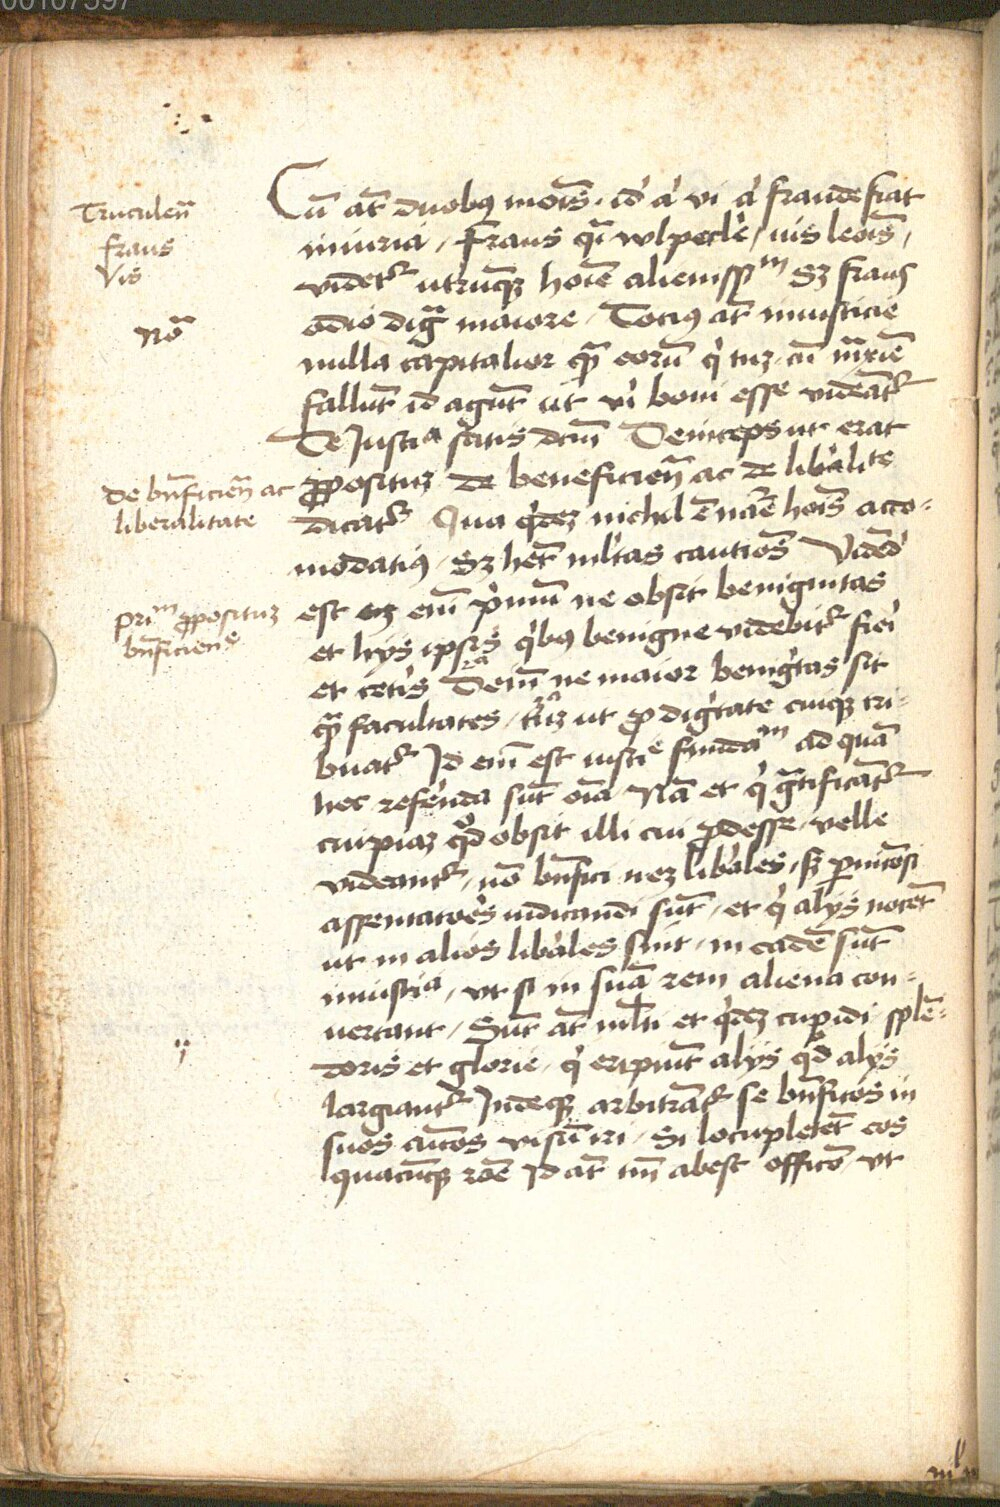 00107597
Truculen̄
fraus
Vis
No᷃
de bn̄ficien̄ ac
liberalitate
pri᷒m ꝓposituꝫ
bn̄ficien᷒e
Cū at̄ duobꝰ mo͞is · id ͛ a ͛ vi a ͛ fraude fiat
iniuria / Fraus q̄i wlpecle / uis leo͞is /
videt᷑ utrūqꝫ ho͞ie alieniss͞im Sꝫ fraus
odio dig̃ maiore / Tociꝰ at̄ iniusticie
nulla capitalior qȝ̃ eorū q ͥ tuꝫ · cū m̄xīe
fallūt id agūt ut vi ͛ boni esse videāt᷑
De Justi ͣ satis dc̄m Deinceps ut erat
ꝓposituꝫ de beneficien̄ ac de lib̕alite
dicat᷑ Qua q ͥdeꝫ nichil ē nat̕e ho͞is acco-
modatiꝰ / Sꝫ het̄ ml̕tas cautio͞s Viden̄d ͛
est eꝫ em̄ p ͥmū ne obsit benignitas
et hijs ipsis q ͥbꝰ benigne videbit᷑ fie ͛i
et cet̕is Dein̄ ne maior benig ͥtas sit
qȝ̃ facultates / tūꝫ ut ꝓ dig ͥtate cuiqꝫ tri-
buat᷑ Id em̄ est iusti ͤ funda ͫ ad quā
hec refe ͛nda sūt o͞ia Nā et q ͥ g̃tificāt᷑
cuipiaꝫ q ͦd obsit illi cui ꝓdesse / velle
videant᷑ / nō bn̄fici neꝫ lib̕ales / sꝫ ꝑnicōsi
assentato ͛es iudicandi sūt / et q ͥ alijs nocēt
ut in alios lib̕ales sint / in eadē sūt
iniusti ͣ / vt si in suā rem aliena con-
uertant / Sūt at̄ ml̕ti et q ͥdeꝫ cupidi splē-
doris et glorie / q ͥ eripiūt alijs q ͦd alijs
largiant᷑ Indeqꝫ arbitrāt᷑ se bn̄ficos in
suos a͞icos visū iri / Si locupletēt eos
quacūqꝫ ro͞e Id at̄ tm̄ abest officō / vt